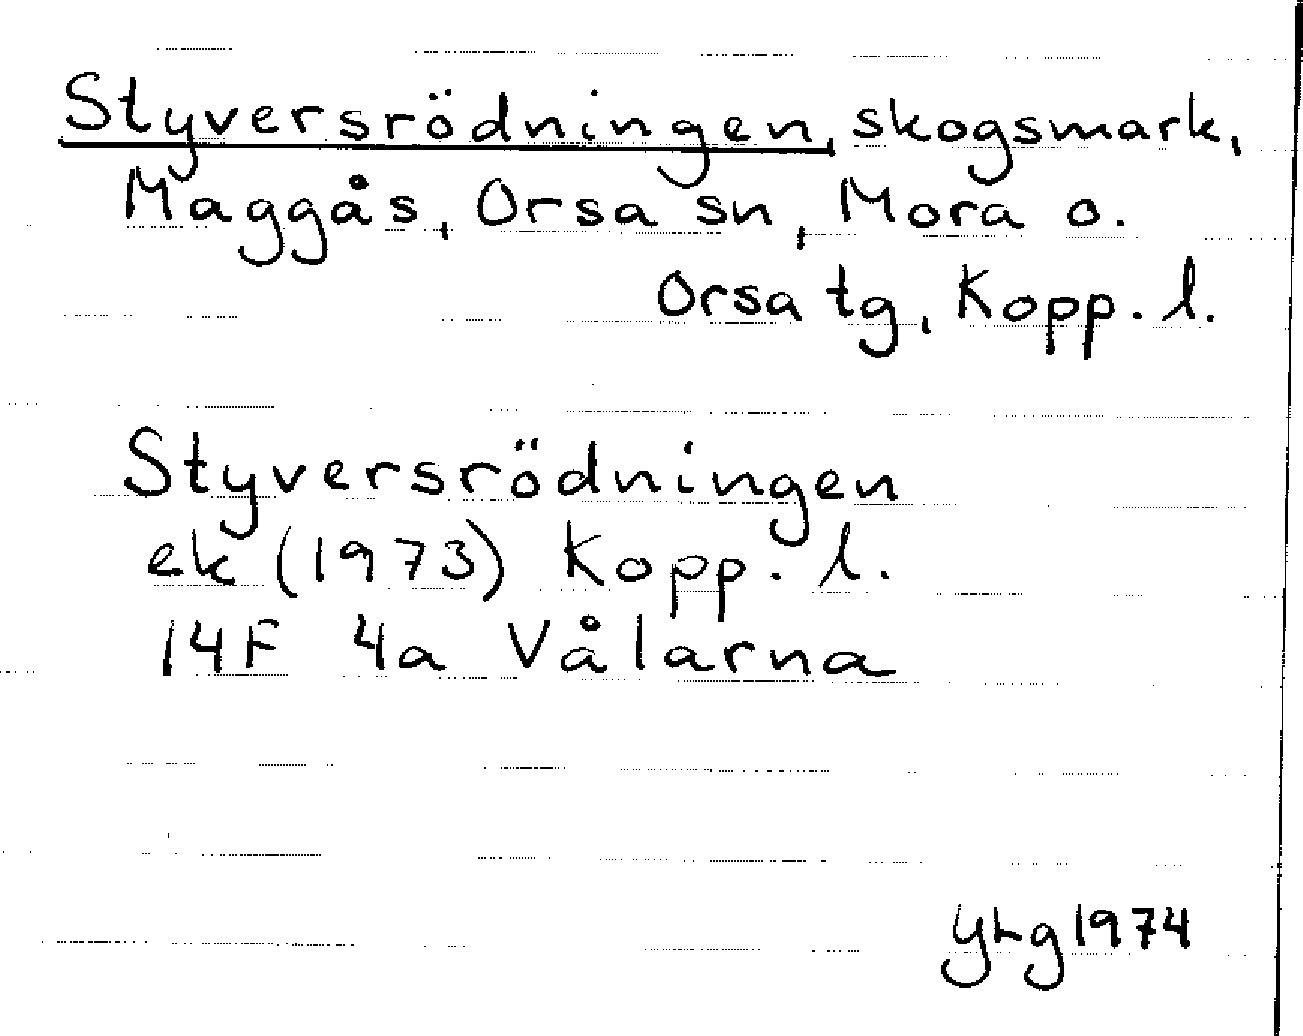 Styversrödningen, skogsmark,
Maggås, Orsa sn, Mora o.
Orsa tg, Kopp. l.
Styversrödningen
ek (1973) Kopp. l.
14F 4a Vålarna
YLg 1974